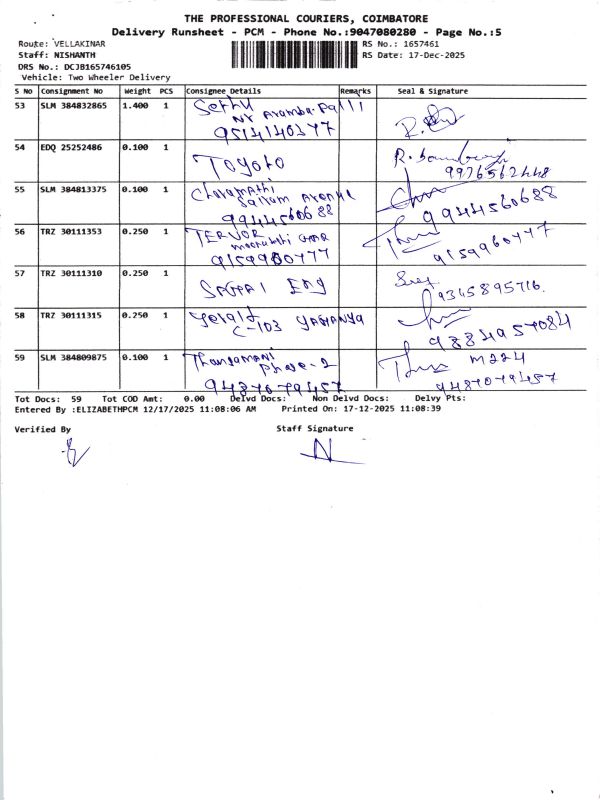 THE PROFESSIONAL COURIERS, COIMBATORE
Delivery Runsheet - PCM - Phone No.:9047080280 - Page No.:5
Route: VELLAKINAR
RS No.: 1657461
Staff: NISHANTH
RS Date: 17-Dec-2025
DRS No.: DCJB165746105
Vehicle: Two Wheeler Delivery
S No Consignment No Weight PCS Consignee Details Remarks Seal & Signature
53 SLM 384832865 1.400 1 Sethu
54 EDQ 25252486 0.100 1 Toyoto
9976562448
55 SLM 384813375 0.100 1
Sairam Avenue
9944560688 9944560688
56 TRZ 30111353 0.250 1
9159960777 9159960777
57 TRZ 30111310 0.250 1 Eng
9345895716.
58 TRZ 30111315 0.250 1 Gerald
C-103 9884957084
59 SLM 384809875 0.100 1 Thangamani
Phase-2 M224
9487079457 9487079457
Tot Docs: 59 Tot COD Amt: 0.00 Delvd Docs: Non Delvd Docs: Delvy Pts:
Entered By :ELIZABETHPCM 12/17/2025 11:08:06 AM Printed On: 17-12-2025 11:08:39
Verified By Staff Signature